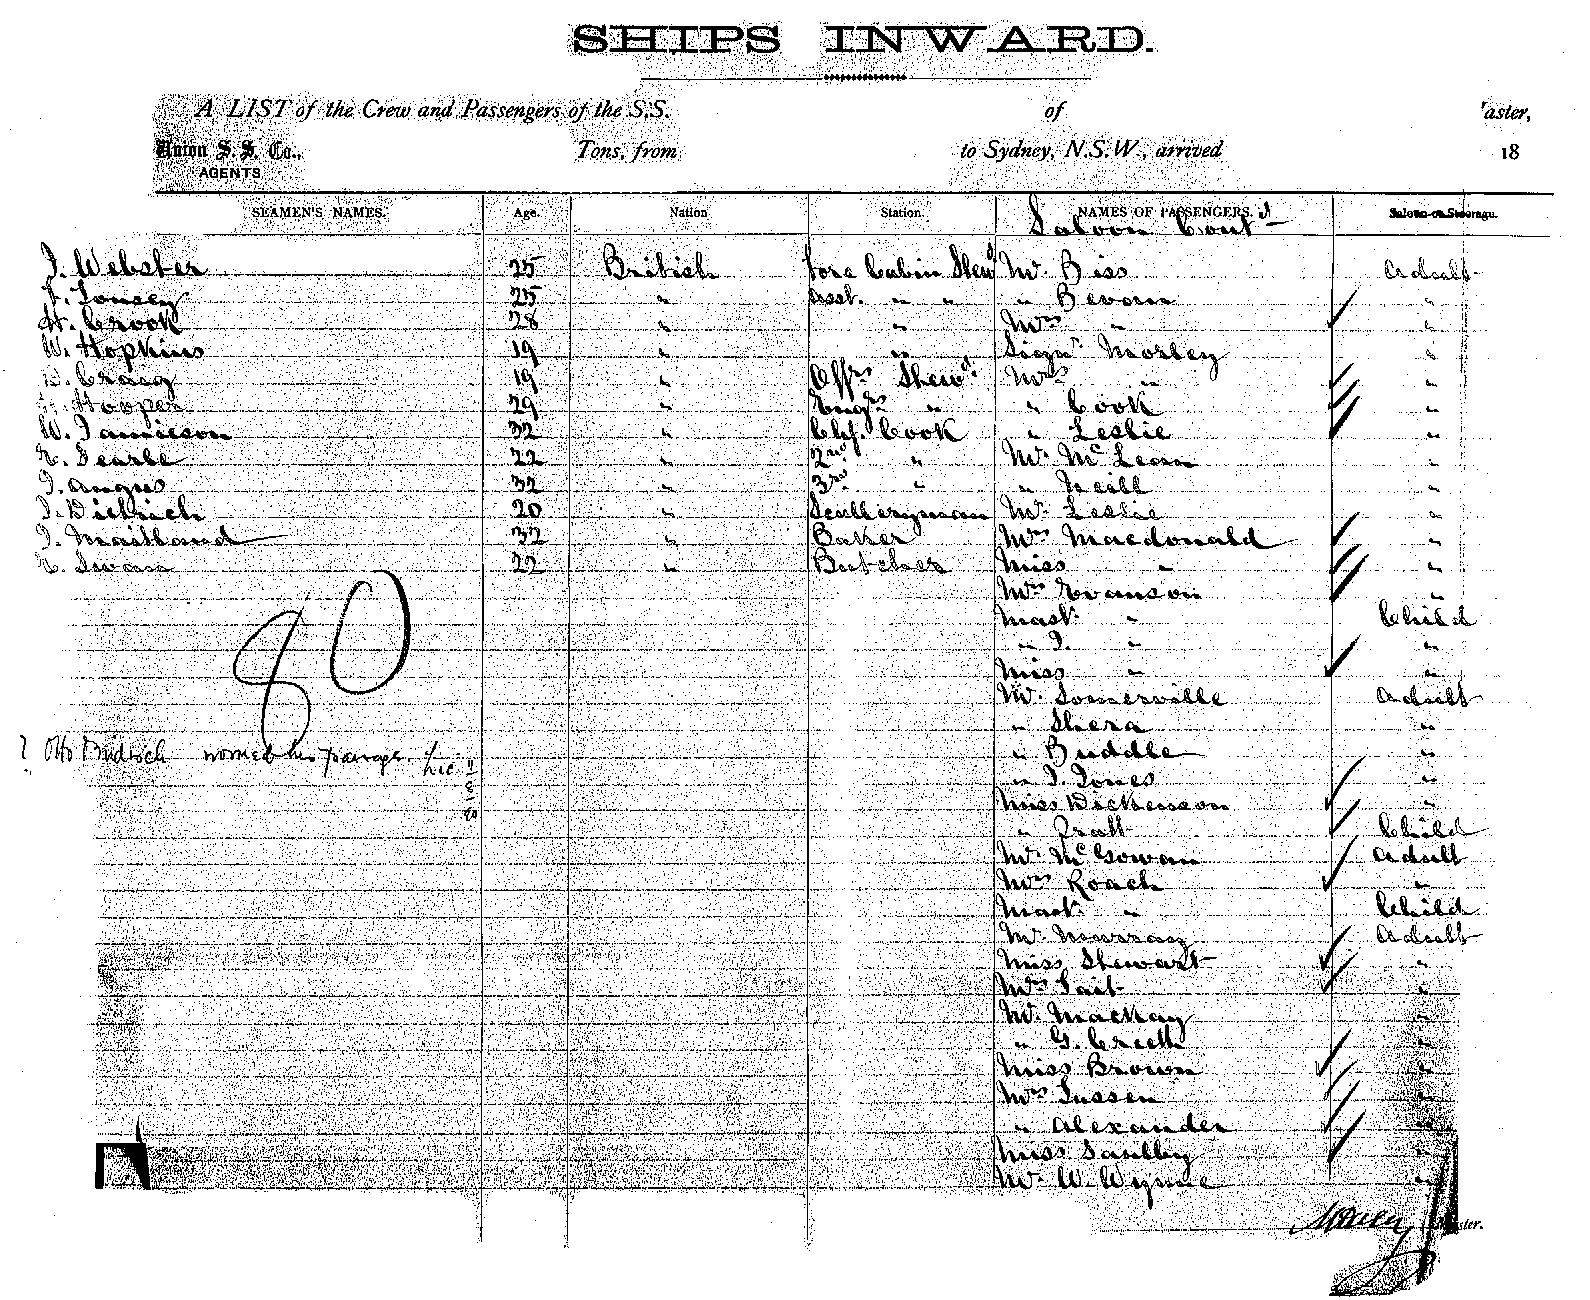 SHIPS INWARD.
A LIST of the Crew and Passengers of the S.S. of aster,
Union S. S. Co., Tons, from to Sydney, N.S.W., arrived 18
AGENTS
SEAMEN'S NAMES. Age. Nation Station. NAMES OF PASSENGERS. Saloon or Steerage.
Saloon Cont^d
J. Webster 25 British Fore Cabin Stew^d Mr. Biss Adult
25 " Asst. " " " Bevan "
H. Crook 28 " " Mrs " "
W. Hopkins 19 " " Sign^r Morley "
Craig 19 " Off^rs Stew^d Mrs " "
Hooper 29 " Eng^rs " " Cook "
W. Jamieson 32 " Chf. Cook " Leslie "
E. Searle 22 " 2nd " Mr. McLean "
J. Angus 32 " 3rd " " Neill "
20 " Sculleryman Mr. Leslie "
J. Maitland 32 " Baker Mrs Macdonald "
E. Swan 22 " Butcher Miss " "
Mrs Evanson "
Mast. " Child
" J. " "
Miss " "
Mr. Somerville Adult
" Shera "
80
" Buddle "
? Otto worked his passage.
" J. Jones "
Miss Dickenson "
" Pratt Child
Mr. McGowan Adult
Mrs Roach "
Mast. " Child
Mr. Murray Adult
Miss Stewart "
Mrs Tait "
Mr. Mackay "
" G. Creeth "
Miss Brown "
Mrs Tussen "
" Alexander "
Miss Saulby "
Mr. W. Wynne "
Master.